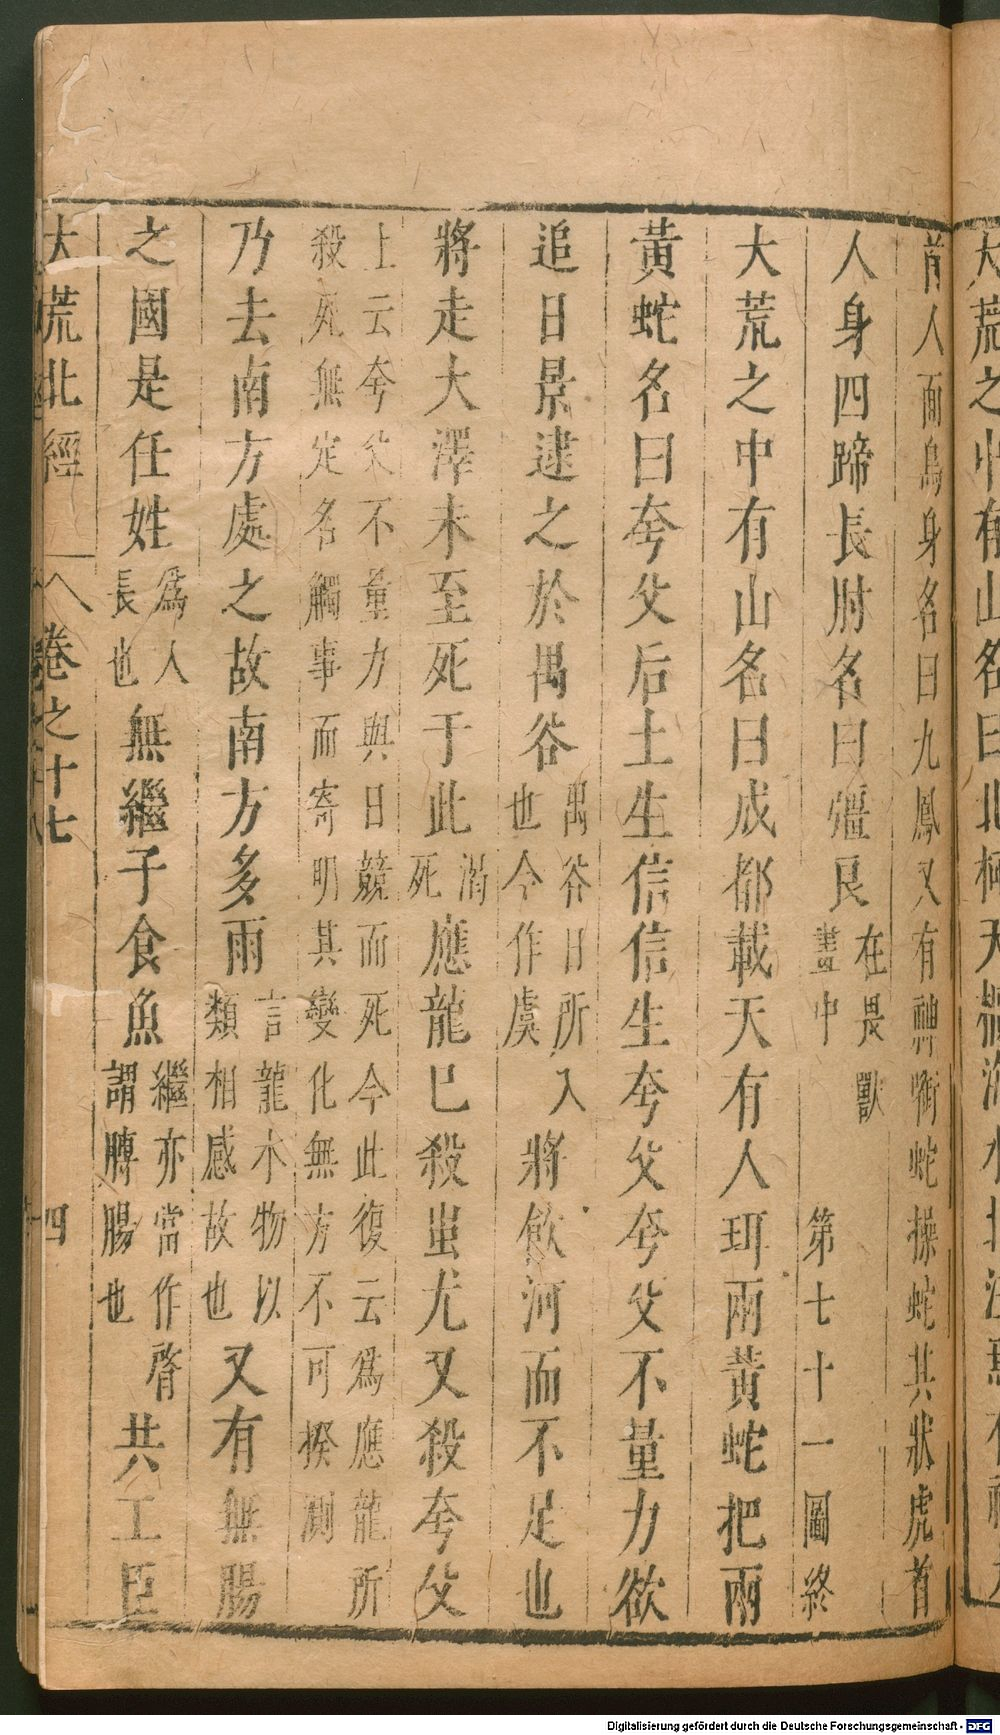 首人面鳥身名曰九鳳又有神銜蛇操蛇其狀虎首
人身四蹄長肘名曰彊良在畏獸畫中第七十一圖終
大荒之中有山名曰成都載天有人珥兩黃蛇把兩
黃蛇名曰夸父后土生信信生夸父夸父不量力欲
追日景逮之於禺谷禺谷日所入也今作虞將飲河而不足也
將走大澤未至死于此渴死應龍已殺蚩尤又殺夸父
上云夸父不量力與日競而死今此復云為應龍所
殺死無定名觸事而寄明其變化無方不可揆測
乃去南方處之故南方多雨言龍水物以類相感故也又有無腸
之國是任姓為人長也無繼子食魚繼亦當作膂謂膞腸也共工臣
大荒北經 卷之十七 四
大荒之中有山名曰北極天櫃海水北注焉有神九
Digitalisierung gefördert durch die Deutsche Forschungsgemeinschaft - DFG